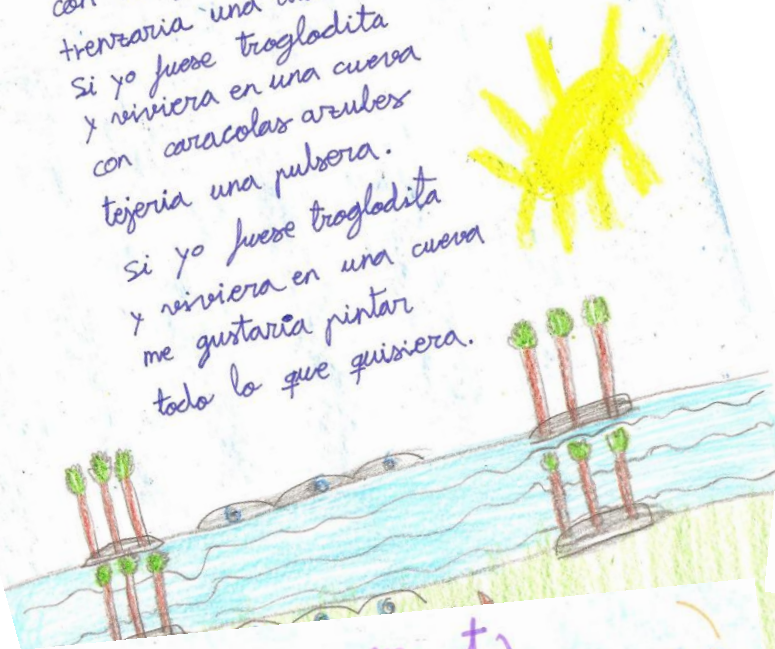 con
trenzaria una
Si yo fuese troglodita
y viviera en una cueva
con caracolas azules
tejeria una pulsera.
Si yo fuese troglodita
y viviera en una cueva
me gustaria pintar
todo lo que quisiera.